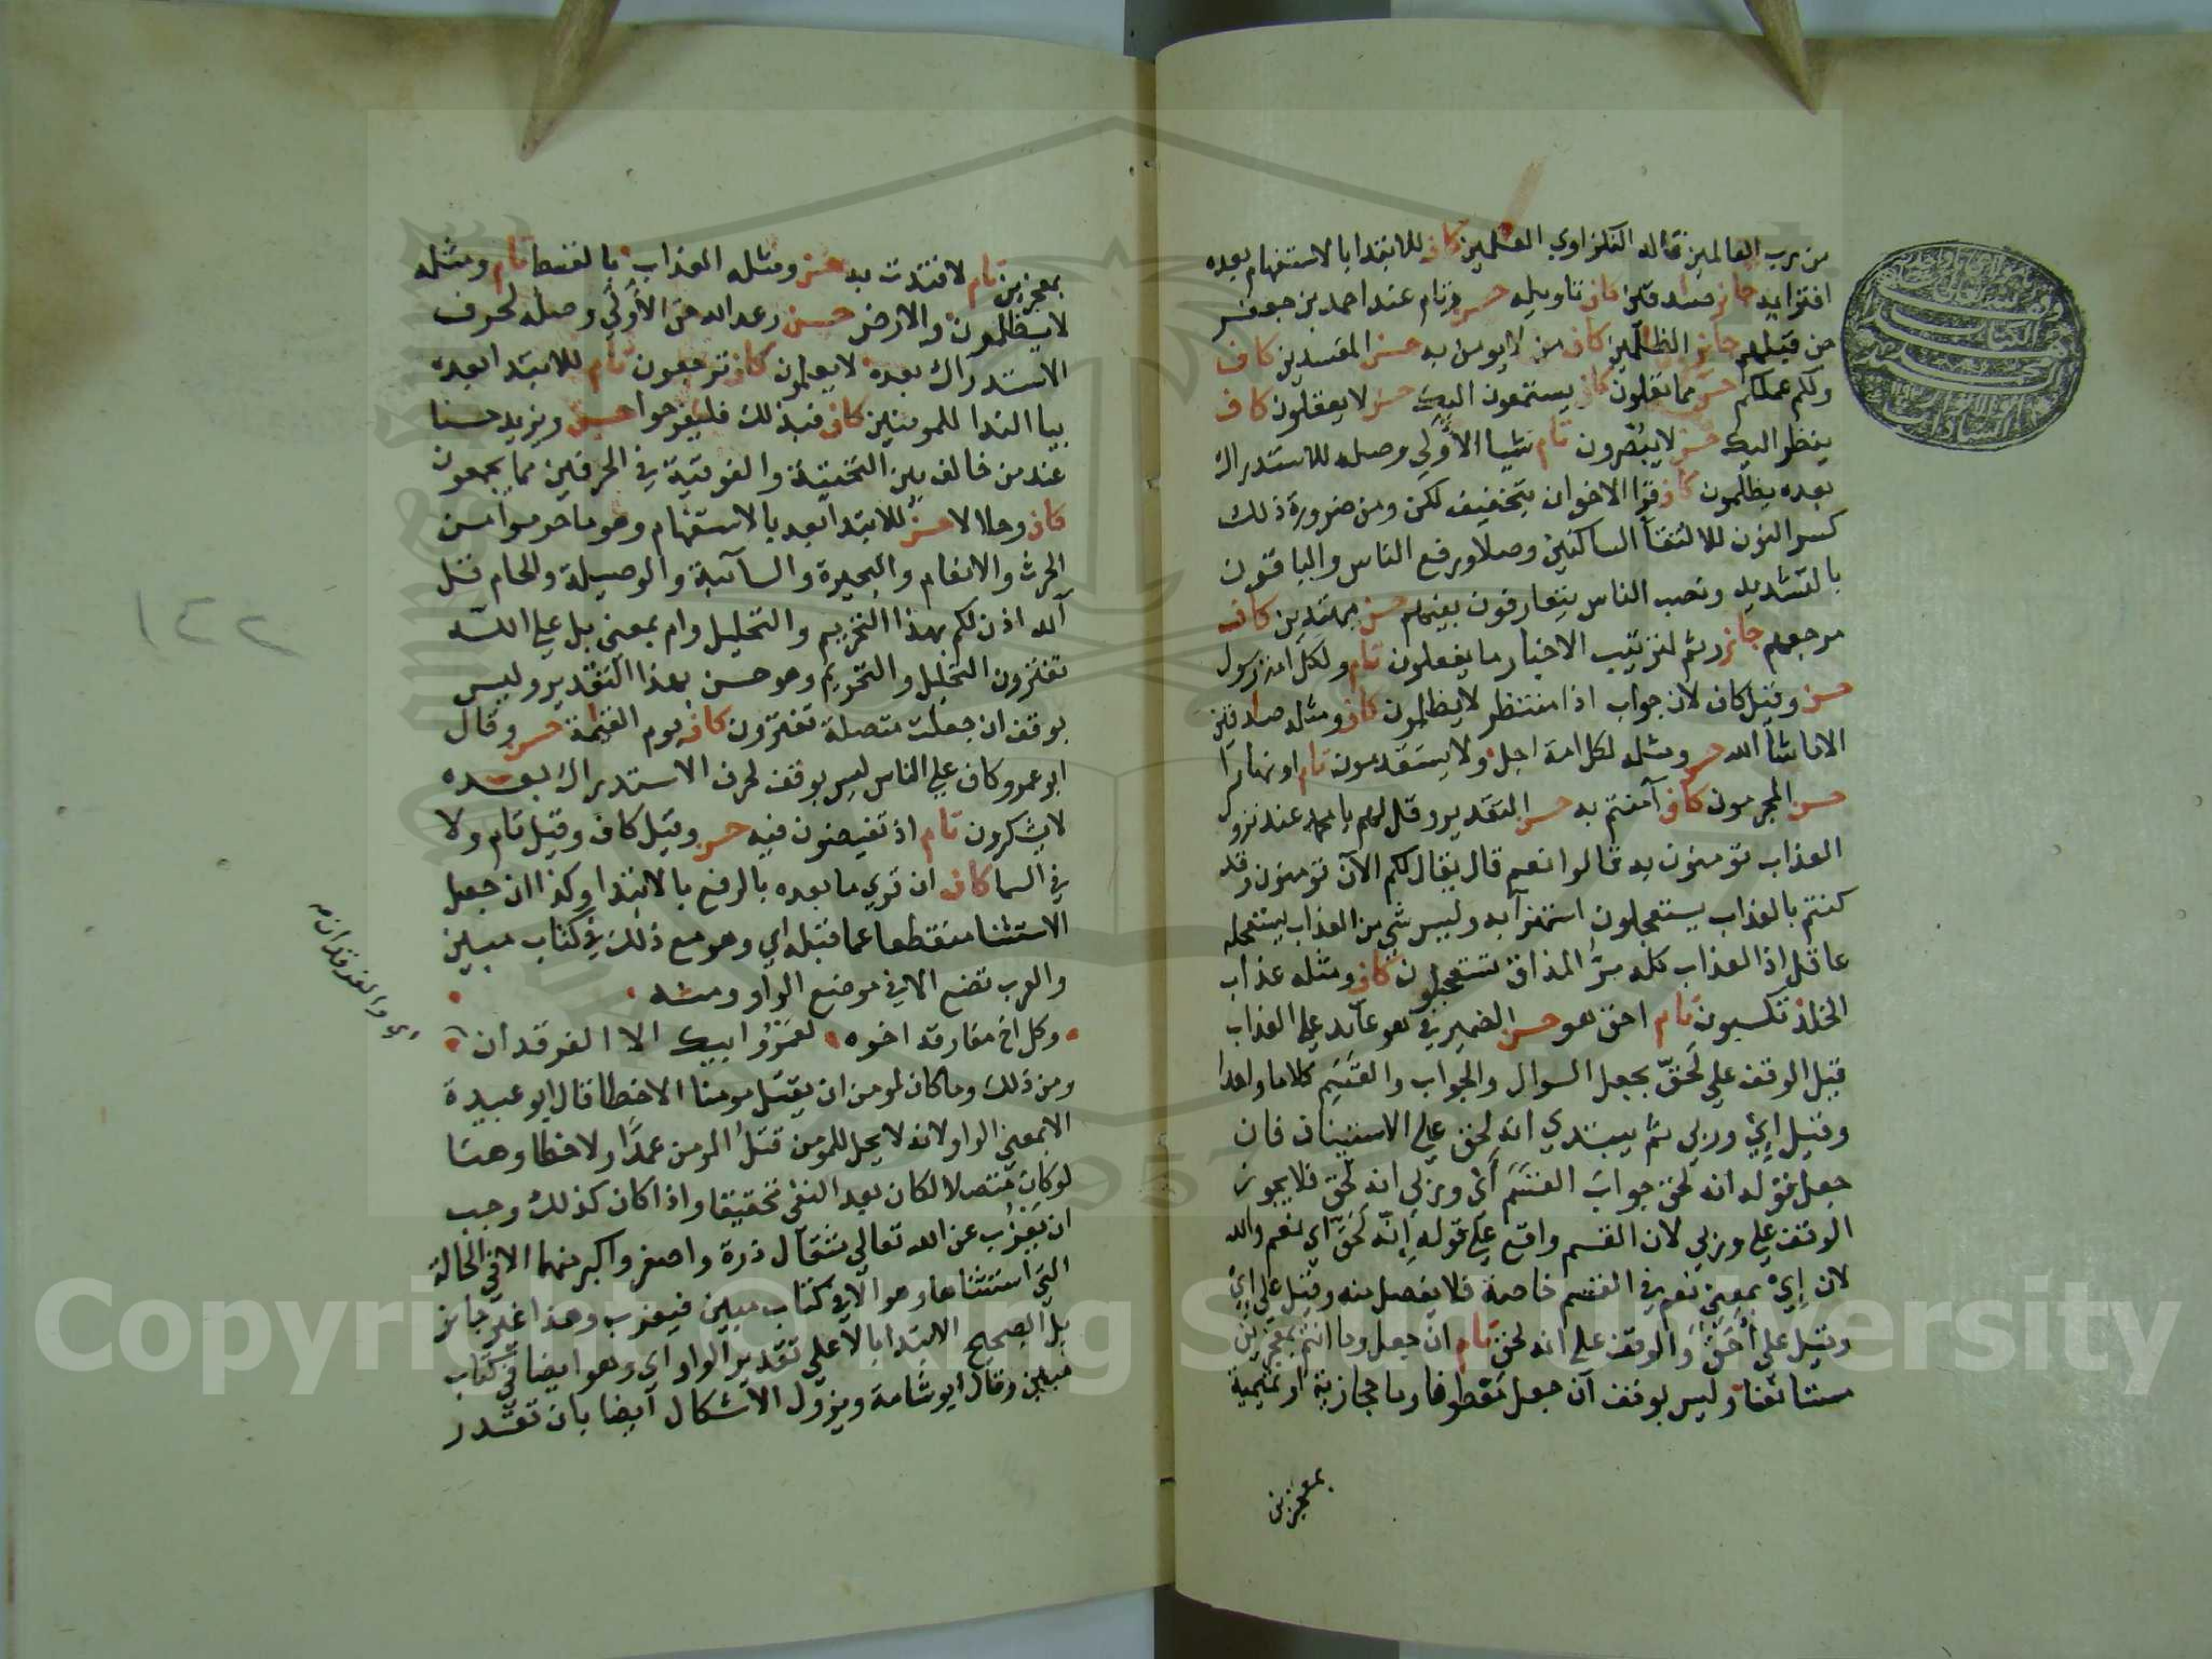 من رب العالمين قاله النكزاوي العلمين كاف للابتدا بالاستفهام بعده
افتراه جائز صدقين كاف تاويله حسن وتام عند احمد بن جعفر
من قبلهم جائز الظلمين كاف من لا يومن به حسن المفسدين كاف
ولكم عملكم حسن مما تعملون كاف يستمعون اليك حسن لا يعقلون كاف
ينظر اليك حسن لا يبصرون تام شيا الاولي وصله للاستدراك
بعده يظلمون كاف قرا الاخوان بتخفيف لكن ومن ضرورة ذلك
كسر النون لالتقآ الساكنين وصلا ورفع الناس والباقون
بالتشديد ونصب الناس يتعارفون بينهم حسن مهتدين كاف
مرجعهم جائز وثم لترتيب الاخبار ما يفعلون تام ولكل امة رسول
حسن وقيل كاف لان جواب اذا منتظر لا يظلمون كاف ومثله صادقين
الا ما شا الله حسن ومثله لكل امة اجل ولا يستقدمون تام او نهارا
حسن المجرمون كاف آمنتم به حسن التقدير وقل لهم يا محمد عند نزول
العذاب تومنون به قالوا نعم قال يقال لكم الآن تومنون وقد
كنتم بالعذاب يستعجلون استهزآ به وليس شي من العذاب يستعجله
عاقل اذ العذاب كله مر المذاق تستعجلون كاف ومثله عذاب
الخلد تكسبون تام احق هو حسن الضمير في هو عآئد علي العذاب
قيل الوقف علي لحق بجعل السوال والجواب والقسم كلاما واحدا
وقيل اي وربي ثم يبتدي انه لحق علي الاستيناف فان
جعل قوله انه لحق جواب القسم أي وربي انه لحق فلا يجوز
الوقف علي وربي لان القسم واقع علي قوله إنه لحق اي نعم والله
لان إي بمعني نعم في القسم خاصة فلا يفصل منه وقيل علي إي
وقيل علي أحق والوقف علي انه لحق تام ان جعل وما انتم بمعجزين
مستانفا وليس بوقف ان جعل معطوفا وما حجازية او تميمية
بمعجزين
بمعجزين تام لافتدت به حسن ومثله العذاب بالقسط تام ومثله
لا يظلمون والارض حسن وعد الله حق الأولي وصله لحرف
الاستدراك بعده لا يعلمون كاف ترجعون تام للابتدا بعده
بيا الندا للمومنين كاف فبذلك فليفرحوا حسن ويزيد حسنا
عند من خالف بين التحتية والفوقية في الحرفين مما يجمعون
كاف وحلالا حسن للابتدا بعده بالاستفهام وهو ما حرموا من
الحرث والانعام والبحيرة والسآئبة والوصيلة والحام قل
آلله اذن لكم بهذا التحريم والتحليل وام بمعني بل علي الله
تفترون التحليل والتحريم وهو حسن بهذا التقدير وليس
بوقف ان جعلت متصلة تفترون كاف يوم القيمة حسن وقال
ابو عمرو كاف علي الناس ليس بوقف لحرف الاستدراك بعده
لا يشكرون تام اذ تفيضون فيه حسن وقيل كاف وقيل تام ولا
في السما كاف ان قري ما بعده بالرفع بالابتدا وكذا ان جعل
الاستثنا منقطعا عما قبله اي وهو مع ذلك في كتاب مبين
والعرب تضع الا في موضع الواو ومنه
وكل اخ مفارقه اخوه لعمرُ ابيك الا الفرقدان
اي والفرقدان
ومن ذلك وما كان لمومن ان يقتل مومنا الا خطا قال ابو عبيدة
الا بمعني الواو لانه لا يحل للمومن قتل المومن عمدا ولا خطا وهنا
لو كان متصلا لكان بعد النفي تحقيقا واذا كان كذلك وجب
ان يعزب عن الله تعالي مثقال ذرة واصغر واكبر منها الا في الحالة
التي استثناها وهو الا في كتاب مبين فيعزب وهذا غير جائز
بل الصحيح الابتدا بالا علي تقدير الواو اي وهو ايضا في كتاب
مبين وقال ابو شامة ويزول الاشكال ايضا بان تقدر
١٢٢
Copyright © King Saud University
1957